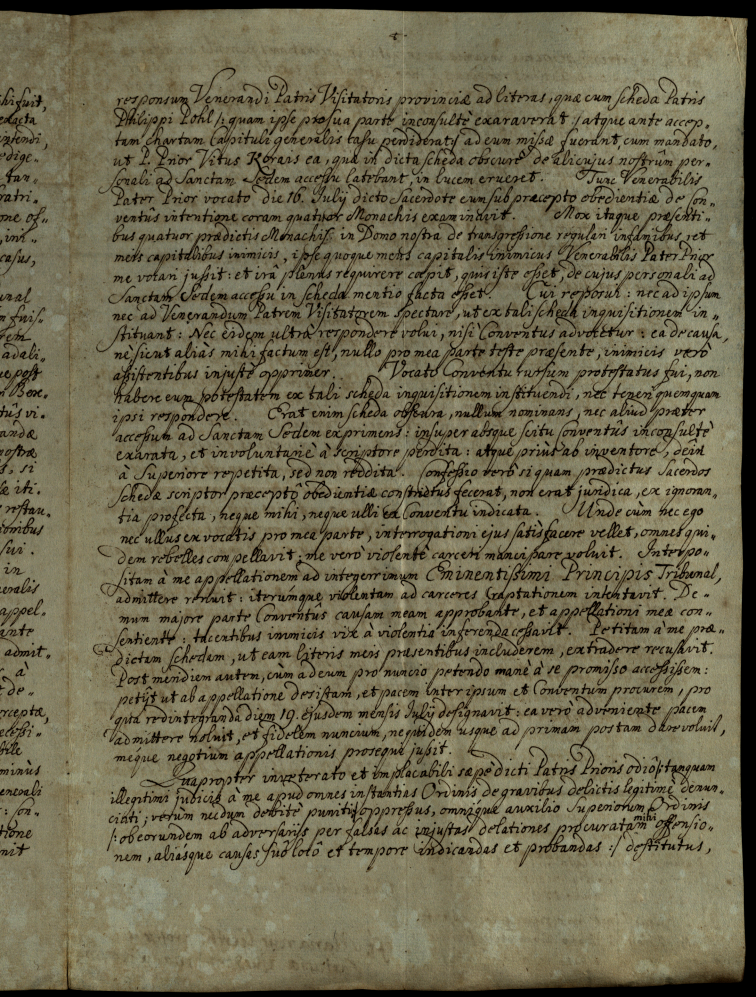 responsum Venerandi Patris Visitatoris provinciæ ad literas, quæ cum scheda Patris
Philippi Pohl /: quam ipse pro sua parte inconsultè exaraverat / atque ante accep-
tam chartam Capituli generalis casu perdiderat :/ ad eum missæ fuerant, cum mandato,
ut P. Prior Vitus Korais ea, quæ in dicta scheda obscurè de alicujus nostrûm per-
sonali ad Sanctam Sedem accessu latebant, in lucem erueret. Tunc Venerabilis
Pater Prior vocato die 16. Julij dicto Sacerdote eum sub præcepto obedientiæ de Con-
ventûs intentione coram quatuor Monachis examinavit. Mox itaque præsenti-
bus quatuor prædictis Monachis in Domo nostra de transgressione regulari infamibus, et
meis capitalibus inimicis, ipse quoque meus capitalis inimicus Venerabilis Pater Prior
me vocari jussit: et irâ plenus requirere coepit, quis iste esset, de cujus personali ad
Sanctam Sedem accessu in scheda mentio facta esset. Cui respondi: nec ad ipsum
nec ad Venerandum Patrem Visitatorem spectare, ut ex tali scheda inquisitionem in-
stituant: Nec eidem ultrà respondere volui, nisi Conventus advocetur: ea de causa,
ne sicut aliàs mihi factum est, nullo pro mea parte teste præsente, inimicis verò
assistentibus injustè opprimer. Vocato Conventu rursum protestatus fui, non
habere eum potestatem ex tali scheda inquisitionem instituendi, nec teneri quemquam
ipsi respondere. Erat enim scheda obscura, nullum nominans, nec aliud præter
accessum ad Sanctam Sedem exprimens: insuper absque scitu Conventûs inconsultè
exarata, et involuntariè à scriptore perdita: atque prius ab inventore, dein
à Superiore repetita, sed non reddita. Confessio verò si quam prædictus Sacerdos
schedæ scriptor præceptô obedientiæ constrictus fecerat, non erat juridica, ex ignoran-
tia profecta, neque mihi, neque ulli ex Conventu indicata. Unde cum nec ego
nec ullus ex vocatis pro mea parte, interrogationi ejus satisfacere vellet, omnes qui-
dem rebelles compellavit; me verò violentè carceri mancipare voluit. Interpo-
sitam à me appellationem ad integerrimum Eminentissimi Principis Tribunal,
admittere renuit: iterumque violentam ad carceres captationem intentavit. De-
mum majore parte Conventûs causam meam approbante, et appellationi meæ con-
sentiente: tacentibus inimicis vix à violentia inferenda cessavit. Petitam à me præ-
dictam schedam, ut eam literis meis præsentibus includerem, extradere recusavit.
Post meridiem autem, cùm ad eum pro nuncio petendo manè à se promisso accessissem:
petijt ut ab appellatione desistam, et pacem inter ipsum et Conventum procurem, pro
qua redintegranda diem 19. ejusdem mensis Julij designavit: ea verò adveniente pacem
admittere noluit, et fidelem nuncium, nequidem usque ad primam postam dare voluit,
meque negotium appellationis prosequi jussit.
Quapropter inveterato et implacabili sæpè dicti Patris Prioris odiô /: tanquam
illegitimi judicis à me apud omnes instantias Ordinis de gravibus delictis legitimè denun-
ciati; verùm necdum debitè puniti :/ oppressus, omnique auxilio Superiorum Ordinis
/: ob eorundem ab adversarijs per falsas ac injustas delationes procuratam mihi offensio-
nem, aliasque causas suô locô et tempore indicandas et probandas :/ destitutus,